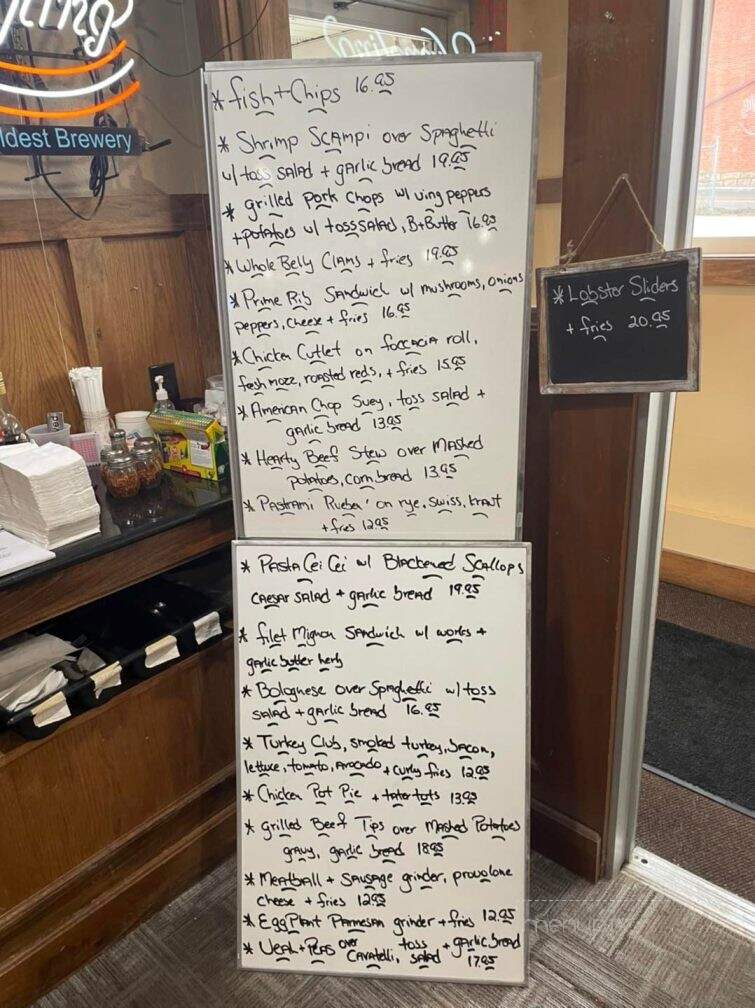 ldest Brewery
* fish + Chips 16.95
* Shrimp Scampi over Spaghetti
w/ toss salad + garlic bread 19.95
* grilled Pork Chops w/ ving peppers
+ potatoes w/ toss salad, B+Butter 16.95
* Whole Belly Clams + fries 19.95
* Prime Rib Sandwich w/ mushrooms, onions
peppers, cheese + fries 16.95
* Chicken Cutlet on foccacia roll,
fresh mozz, roasted reds, + fries 15.95
* American Chop Suey, toss salad +
garlic bread 13.95
* Hearty Beef Stew over Mashed
potatoes, corn bread 13.95
* Pastrami Rueben on rye, swiss, kraut
+ fries 12.95
* Lobster Sliders
+ fries 20.95
* Pasta Cei Cei w/ Blackened Scallops
caesar salad + garlic bread 19.95
* filet Mignon Sandwich w/ works +
garlic butter herb
* Bolognese over Spaghetti w/ toss
salad + garlic bread 16.95
* Turkey Club, smoked turkey, bacon,
lettuce, tomato, avocado + curly fries 12.95
* Chicken Pot Pie + tater tots 13.95
* grilled Beef Tips over Mashed Potatoes
gravy, garlic bread 18.95
* Meatball + Sausage grinder, provolone
cheese + fries 12.95
* EggPlant Parmesan grinder + fries 12.95
* Veal + Peas over Cavatelli, toss salad + garlic bread
17.95